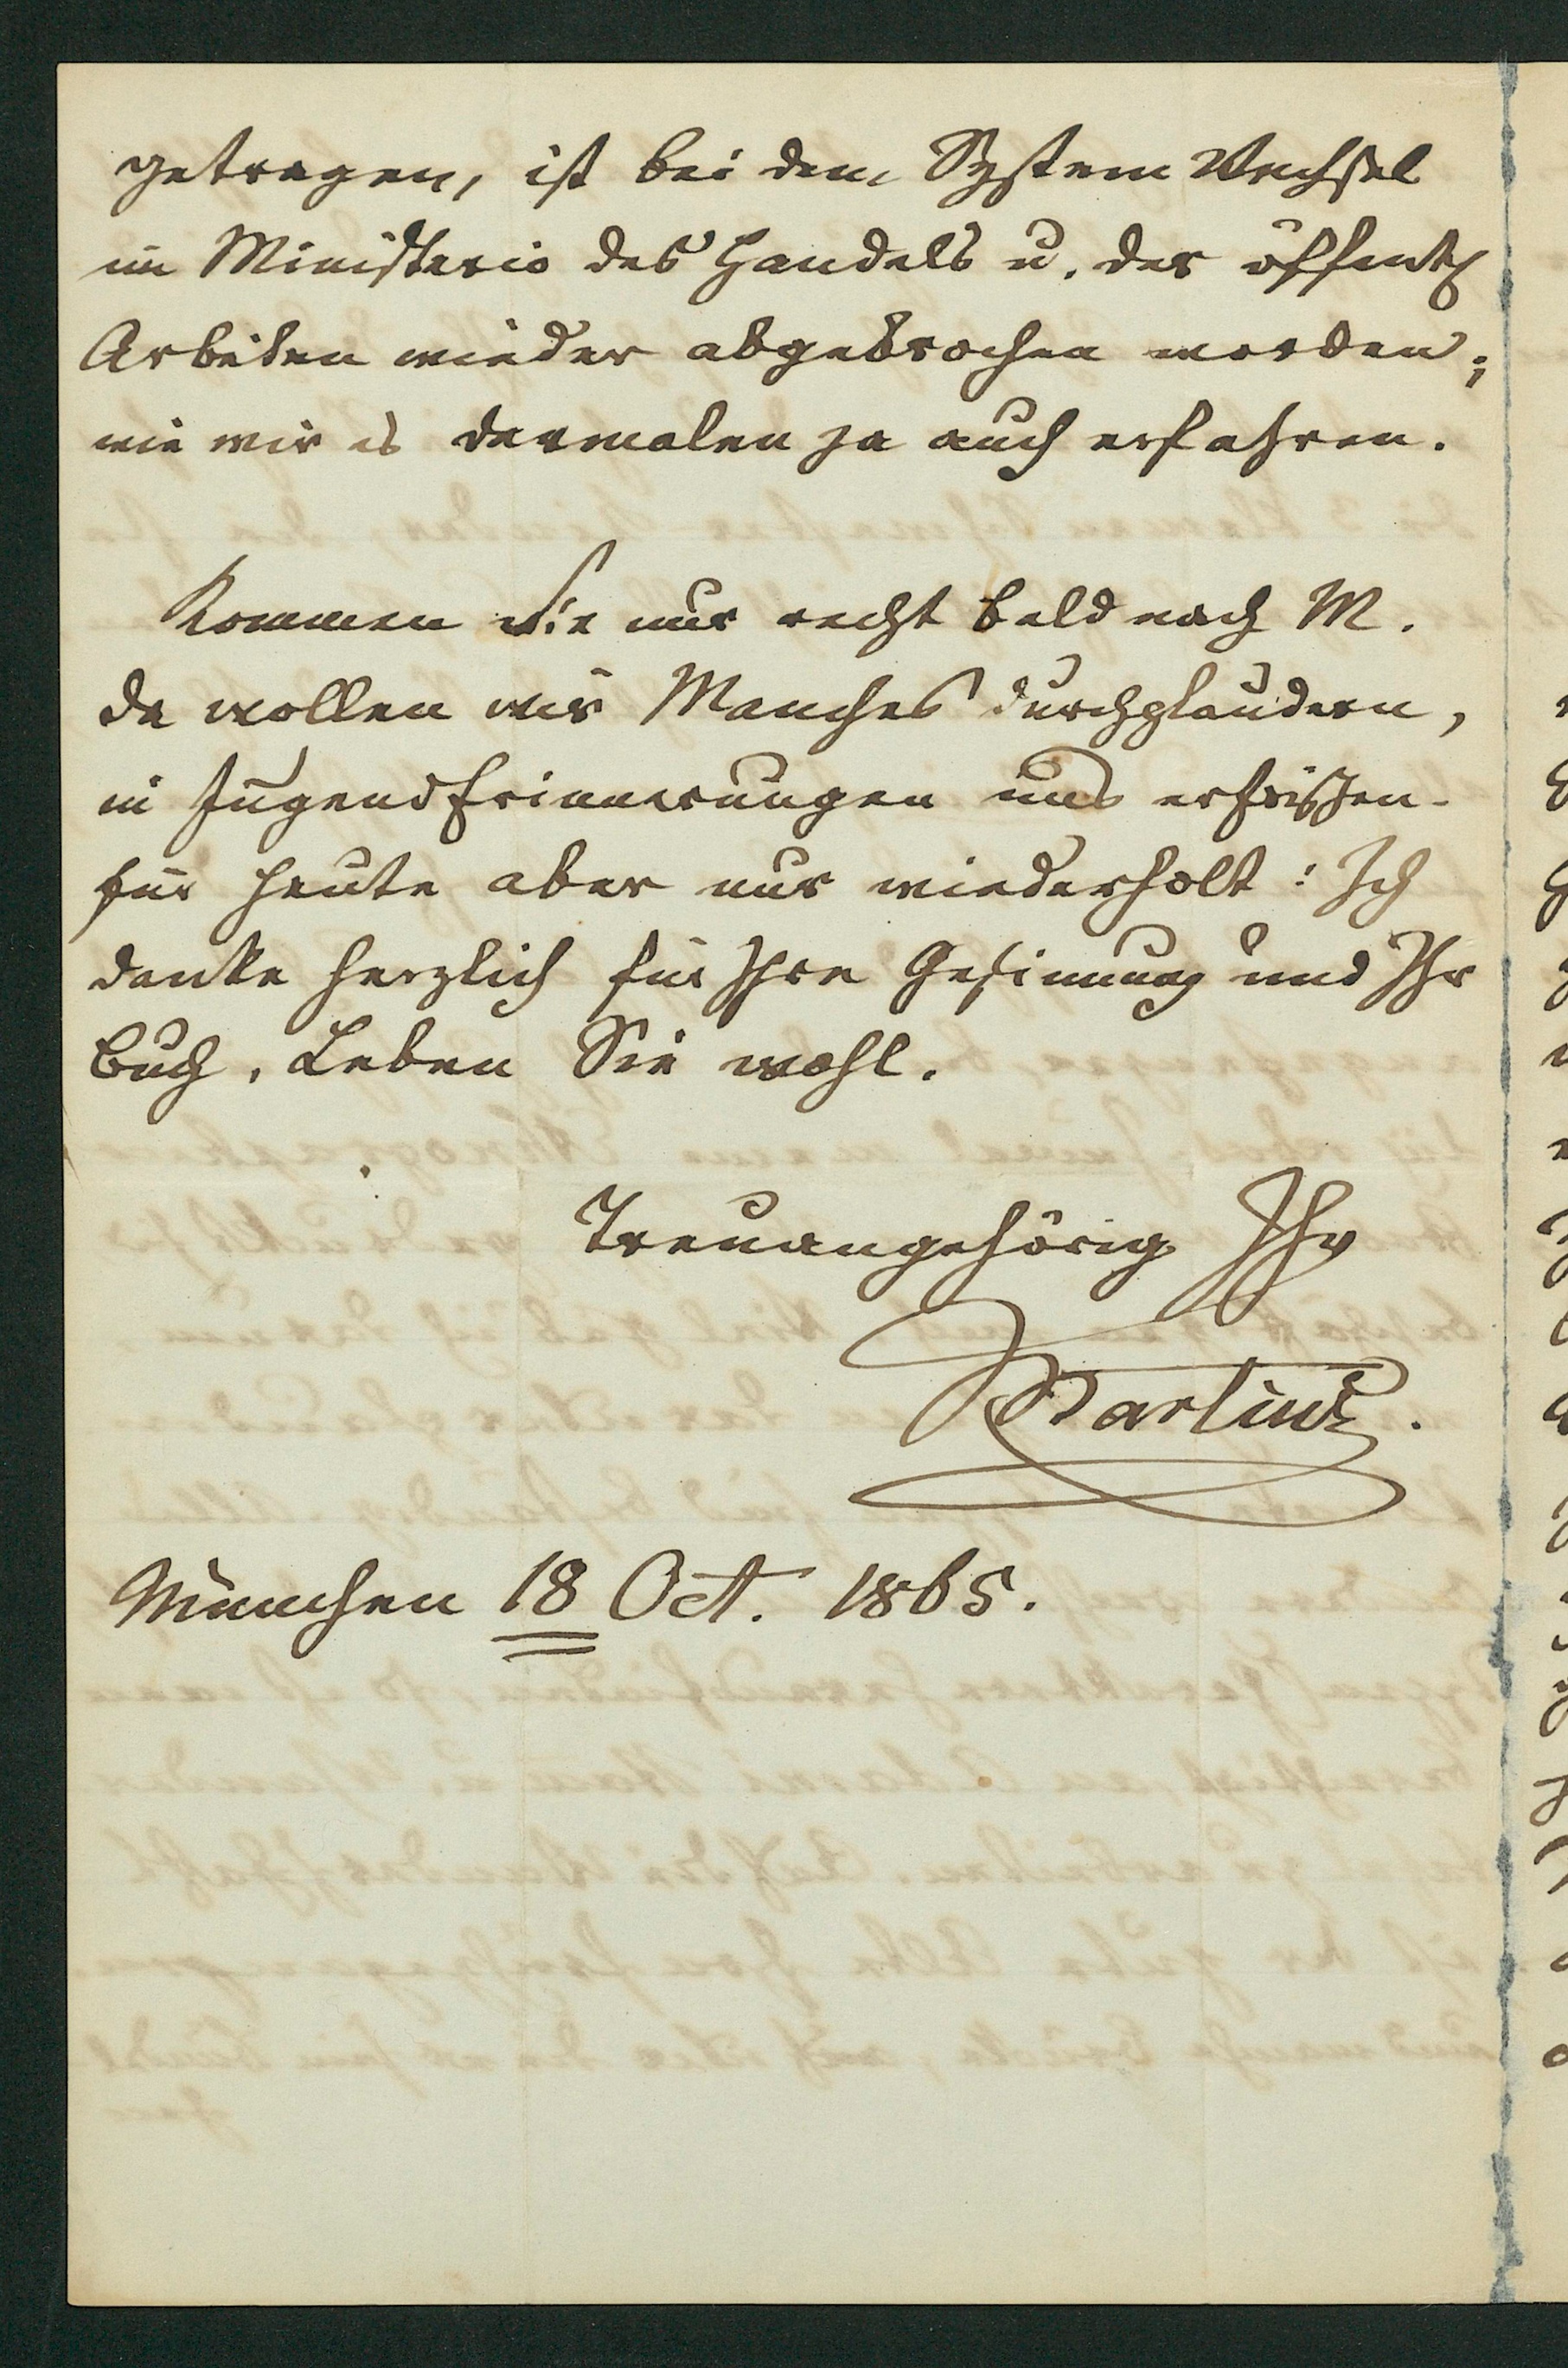 getragen, ist bei dem System Wechsel
im Ministerio des Handels u. der öffentl
Arbeiten wieder abgebrochen worden;
wie wir es dermalen ja auch erfahren.
Kommen Sie nur recht bald nach M.
da wollen wir Manches durchplaudern,
in JugendErinnerungen uns erfrischen.
für heute aber nur wiederholt: Ich
danke herzlich für Ihre Gesinnung und Ihr
Buch. Leben Sie wohl.
Treuangehörig Ihr
Martius.
München 18 Oct. 1865.